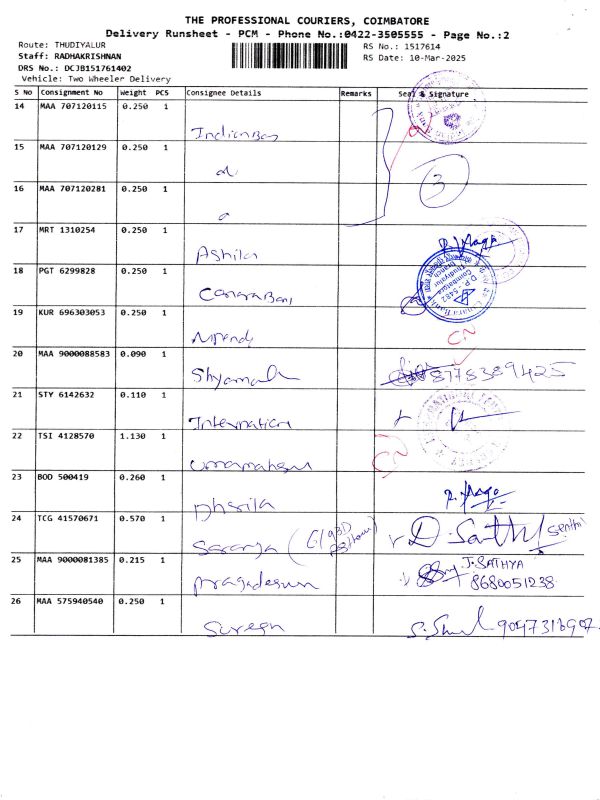 THE PROFESSIONAL COURIERS, COIMBATORE
Delivery Runsheet - PCM - Phone No.:0422-3505555 - Page No.:2
Route: THUDIYALUR
RS No.: 1517614
Staff: RADHAKRISHNAN
RS Date: 10-Mar-2025
DRS No.: DCJB151761402
Vehicle: Two Wheeler Delivery
S No Consignment No Weight PCS Consignee Details Remarks Seal & Signature
14 MAA 707120115 0.250 1
Indian Ban
15 MAA 707120129 0.250 1
16 MAA 707120281 0.250 1
3
17 MRT 1310254 0.250 1
18 PGT 6299828 0.250 1
Canara Ban
19 KUR 696303053 0.250 1
CN
20 MAA 9000088583 0.090 1
Shyamala 8778389425
21 STY 6142632 0.110 1
Internation
22 TSI 4128570 1.130 1
CN
Umamahesw
23 BOD 500419 0.260 1
24 TCG 41570671 0.570 1
D. Sathi Senthil
25 MAA 9000081385 0.215 1
J. SATHYA
8680051238
26 MAA 575940540 0.250 1
Suresh 9047316907